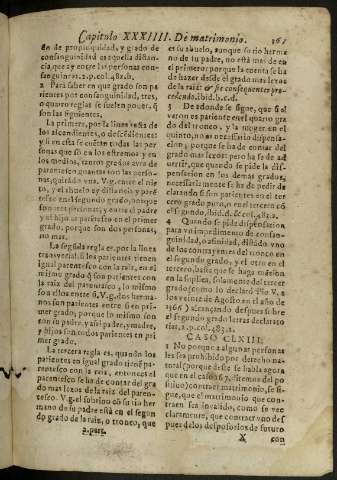 Capitulo XXXIIII. De matrimonio. 361
do de propinquidad, y grado de
consanguinidad es aquella distan-
cia, que ay entre las personas con-
sanguineas. 2.p.col.482.b.
2 Para saber en que grado son pa
rientes por consanguinidad, tres,
o quatro reglas se suelen poner, q̃
son las siguientes.
La primera, por la linea recta de
los ascendientes, o descẽdientes
y si en esta se cuẽtan todas las per
sonas que sõ en los estremos y en
los medios, tantos grados avra de
parentesco quantas son las perso-
nas, quitãdo vna. V.g. entre el nie
to, y el abuelo ay distancia y pare
tesco en el segundo grado, porque
son tres personas: y entre el padre
y el hijo ay parentesco en el primer
grado, porque son dos personas,
no mas.
La segũda regla es, por la linea
transversal: si los parientes tienen
igual parentesco con la raiz, en el
mismo grado q̃ son parientes con
la raiz del parentesco, lo mismo
son ellos entre si. V.g. dos herma-
nos son parientes entre si en pri-
mer grado, porque lo mismo son
con su padre, y assi padre, y madre,
y hijos son todos parientes en pri
mer grado.
La tercera regla es, quando los
parientes en igual grado tienẽ pa-
rentesco con la raiz, entonces el
parentesco se ha de contar del gra
do mas lexos de la raiz del paren-
tesco. V.g. el sobrino cõ su tio her
mano de su padre está en el segun
do grado de la raiz, o tronco, que
2.part.
es su abuelo, aunque su tio herma
no de su padre, no está mas de en
el primero: porque la cuenta se ha
de hazer desde el grado mas lexos
de la raiz: & sic consequenter pro-
cedendo, ibid. b.c.d.
3 De adonde se sigue, que si el
varon es pariente en el quarto gra
do del tronco, y la muger en el
quinto, no es necessario dispensa-
cion, porque se ha de contar del
grado mas lexos: pero ha se de ad
vertir, que quando se pide la dis-
pensacion en los demas grados,
necessariamente se ha de pedir de
clarando si son parientes en el ter
cero grado puro, o en el tercero cõ
el segundo, ibid.d. & col.483.a.
4 Quando se pide dispensacion
para vn impedimento de consan-
guinidad, o afinidad, distãdo vno
de los contrayentes del tronco en
el segundo grado, y el otro en el
tercero, basta que se haga mẽcion
en la suplica, solamente del tercer
grado: como lo declarò Pio V. a
los veinte de Agosto en el año de
1566 y alcançando despues sobre
el segundo grado letras declarato
rias, 2.p.col.483.a.
CASO CLXIII.
1 No porque a algunas personas
les sea prohibido por derecho na-
tural (porque desde se habla agora
que en el caso 67. diremos del po
sitiuo) contraer matrimonio, se si-
gue, que el matrimonio que con-
traen sea inualido, como se vee
claramente, que contraer vno des
pues de los desposorios de futuro
X con